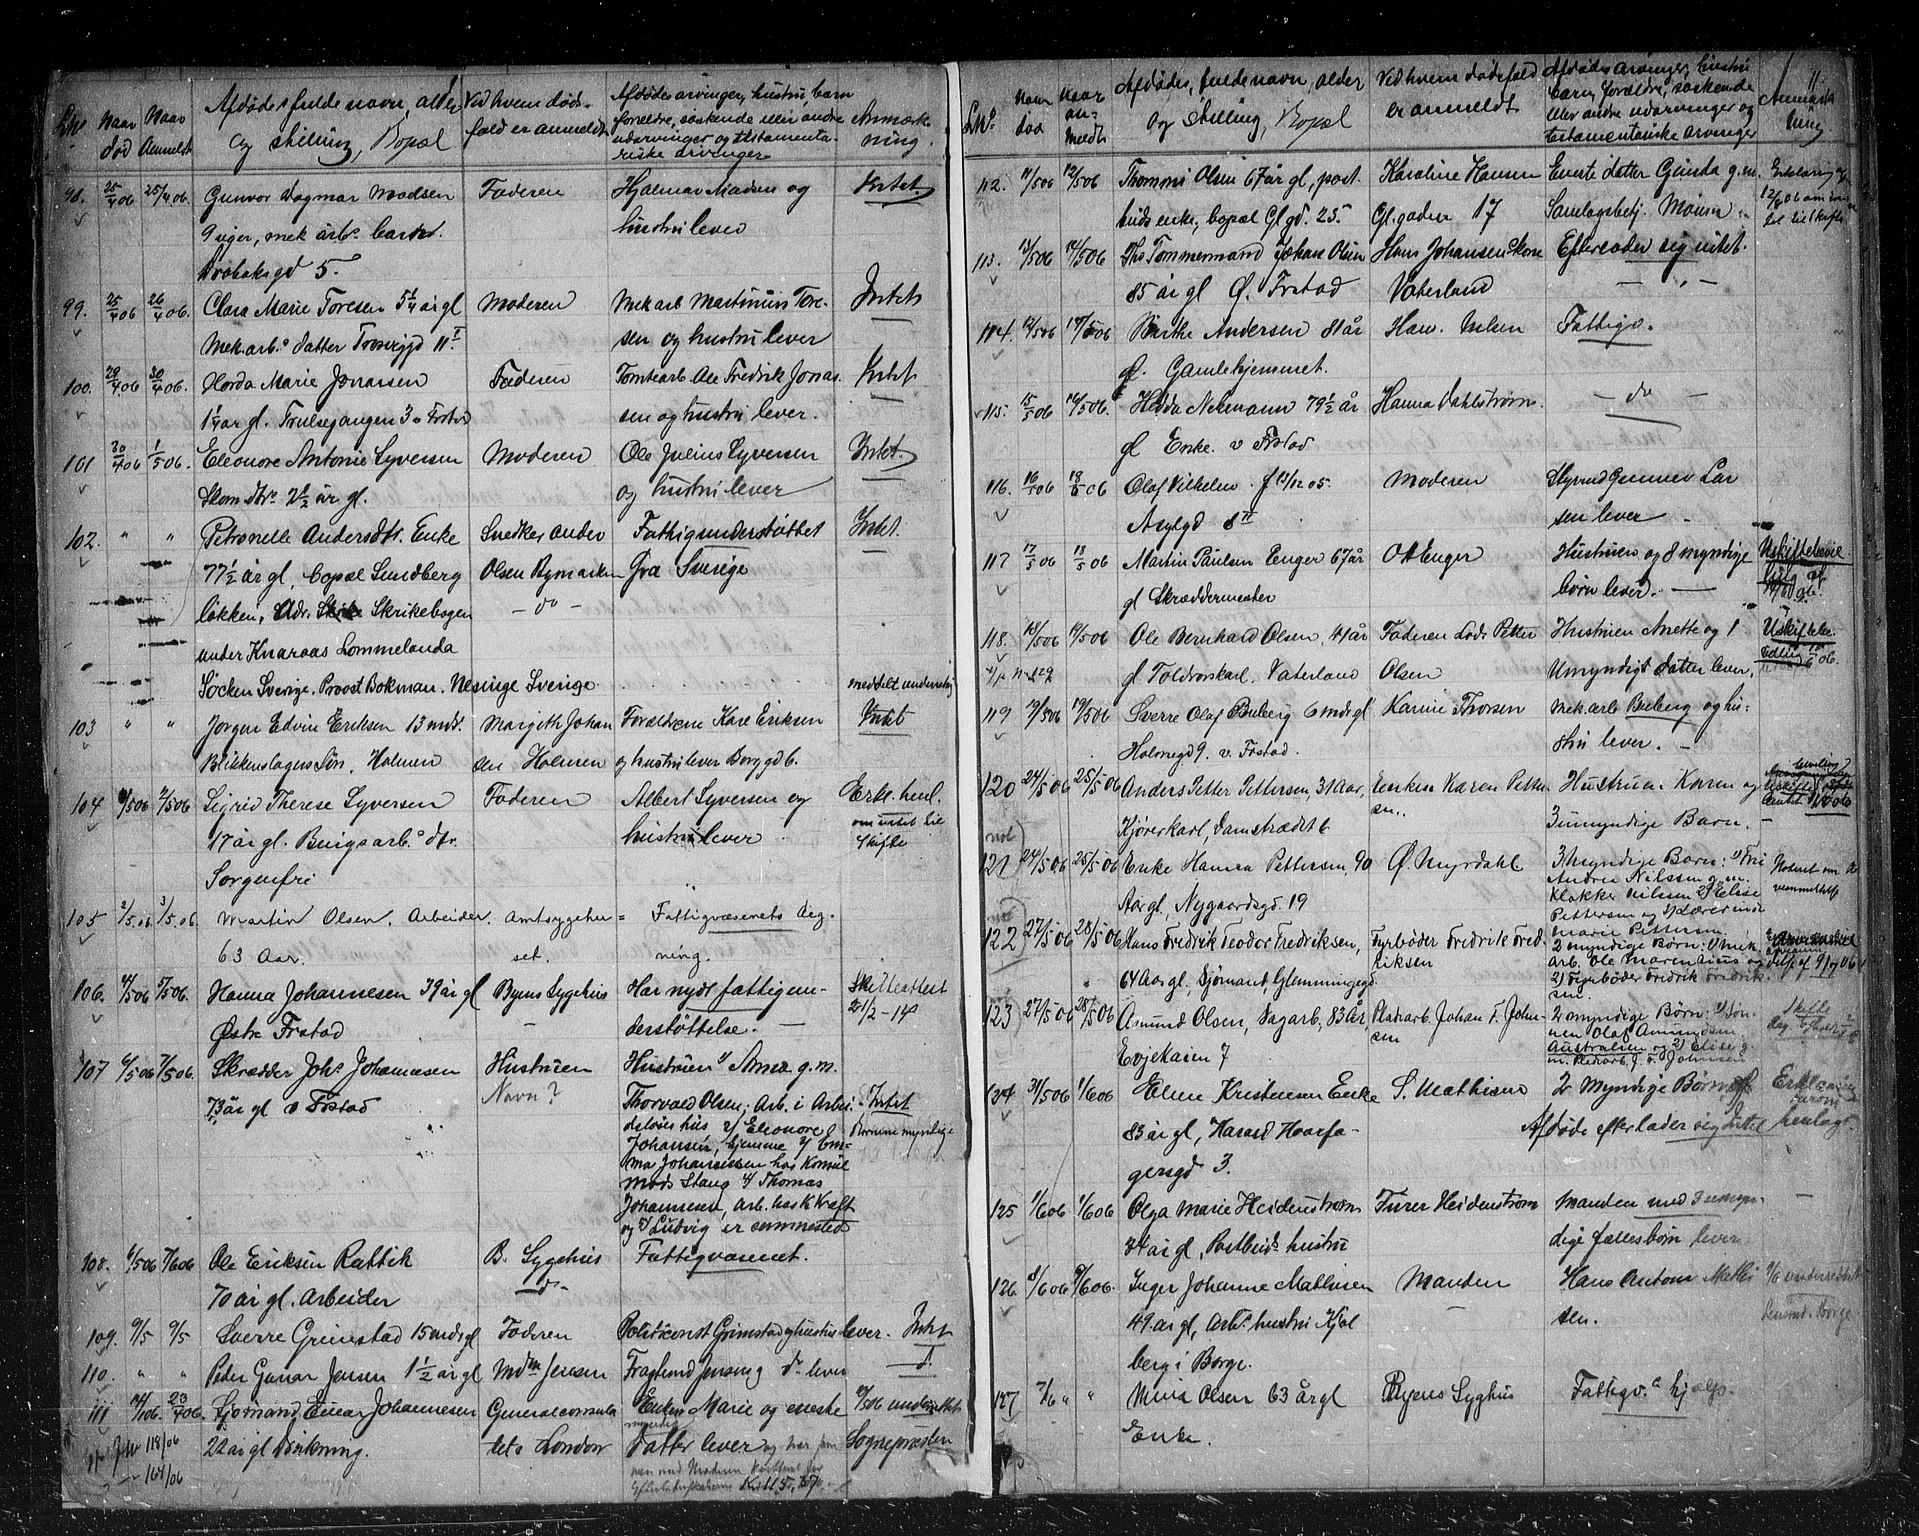 Afdødes fulde navn, alder
og stilling, Bopæl
Ved hvem døds-
fald er anmeldt
Afdødes arvinger, hustru, barn
forældre, søskende eller andre
udarvinger og testamenta-
riske arvinger
Anmærk-
ning.
Naar
død
Naar
Anmeldt
98. 25/4 06 25/4 06. Gunvor Dagmar Madsen Faderen Hjalmar Madsen og Intet.
9 uger, mek arb. barn. hustru lever
Drøbaksgd 5.
99. 25/4 06 26/4 06. Clara Marie Toresen 5 1/4 år gl Moderen Mek arb Martinius Tore- Intet
Mek.arb.s datter Trosvygd 11 sen og hustru lever
100. 29/4 06 30/4 06. Horda Marie Jonassen Faderen Tomtearb Ole Fredrik Jonas- Intet
1 1/4 år gl. Trulsegangen 3 Frstad sen og hustru lever.
101 30/4 06 1/5 06. Eleonore Antonie Syversen Moderen Ole Julius Syversen Intet.
Skom dtr. 2 1/2 år gl. og hustru lever
102. " " Petronelle Andersdtr. Enke Snedker Ander Fattigunderstøttet Intet.
77 1/2 år gl bopæl Sundberg Olsen Bymarken fra Sverige
løkken, Adr. Skrikebogen - do -
under Knaraas Lommelanda
Socken Sverige. Proost Bokman. Nesinge Sverige. meddelt underretn
103 " " Jørgen Edvin Eriksen 13 mdr. Margith Johan Forældrene Kare Eriksen Intet
Blikkenslagers Søn, Holmen sen Holmen og hustru lever Borggd 6.
104 1/5 06 2/5 06. Sigrid Therese Syversen Faderen Albert Syversen og Erkl. henl.
17 år gl. Brugsarb. dtr. hustru lever om intet til
Sorgenfri Skifte
105 2/5 06 3/5 06. Martin Olsen. Arbeider. Amtsygehu- Fattigvæsenets Reg-
63 Aar. set. ning.
106. 4/5 06 5/5 06. Hanna Johannesen 39 år gl Byens Sygehus Har nydt fattigun- Skifteattest
Østre Frstad - derstøttelse. - 21/2 - 14
107 6/5 06 7/5 06. Skrædder Johs Johannesen Hustruen Hustruen 1/ Anna g.m.
73 år gl v Frstad Navn? Thorvald Olsen, Arb. i Arbei- Intet
dsløses hus 2/ Eleonore Børnene myndige
Johansen, hjemme 3/ Em-
ma Johannessen hos Konsul
Mads Stang 4/ Thomas
Johannesen, Arb. has k Kraft
og 5/ Ludvig er sømmested
108. 6/5 06 7/5 06 Ole Eriksen Rattik B. Sygehus Fattigvæsnet.
70 år gl. Arbeider do
109. 9/5 9/5 Sverre Grimstad 15 mdr gl Faderen Politikonst Grimstad og hustru lever. Intet
110. " " Peder Gunar Jensen 1 1/2 år gl Mdm Jensen Jensen og do lever d.
111 14/1 06. 23/4 06. Sjømand Einar Johannesen Generalconsula Enken Marie og eneste 10/5 06 underrettet
22 år gl Drukning. tets London datter lever og har sam Sognepresten
118/06 men med Moderen
164/06 Kr 115,

Lno. Naar
død
Naar
an-
meldt
Afdødes, fulde navn, alder
og stilling, Bopæl
Ved hvem dødsfald
er anmeldt
Afdødes arvinger, hustru
barn, forældre, søskende
eller andre udarvinger og
testamentariske arvinger
Anmærk
ning
11
112. 11/5 06 12/5 06 Thommi Olsen 67 år gl, post Karoline Hansen Eneste datter Gunda g.m. Erklæring af
buds enke, bopæl Gl.gd. 25. Gl. gaden 17 Samlagsbetj. 12/5 06 om intet til skifte
113. 11/5 06 12/5 06 Ths Tømmermand Johan Olsen Hans Johansen Efterlader sig intet.
85 år gl Ø. Frstad Vaterland - " -
114. 12/5 06 14/5 06 Birthe Andersen 81 år Fattigv.
gl. Gamlehjemmet.
115. 15/5 06 16/5 06. Hedda Nekmann 79 1/2 år Hanna Dahlstrøm. - do -
gl Enke. v Frstad
116. 16/5 06 18/5 06 Olaf Vilhelm f 13/12 05. Moderen Styrmd Gunner Lar
Asylgd 8 sen lever -
117 17/5 06 18/5 06 Martin Paulsen Enger 67 år Ott Enger Hustruen og 8 myndige Uskiftebevil
gl Skræddermester børn lever. -
118. 18/5 06 19/5 06 Ole Bernhard Olsen, 41 år Faderen Lods Petter Hustruen Anette og 1 Uskiftebev.
gl Toldrorskarl. Vaterland Olsen Umyndigt datter lever.
119 19/5 06 19/5 06 Sverre Olaf Buberg 6 mdr gl Karine Thorsen Mek arb Buberg og hu-
Holmegd 9. v. Frstad. stru lever. -
120 24/5 06 25/5 06 Anders Petter Pettersen, 31 Aar, Enken Karen Petter- Hustruen Karen og
Kjørerkarl, Damstrædet 6 sen. 3 umyndige Barn. -
121 24/5 06 25/5 06 Enke Hanna Pettersen, 90 Ø. Myrdahl 3 myndige Barn: 1)
Aar gl, Nygaardsgd. 19 Andrea Nilssen g.m.
Klokker Nilssen 2) Elise
Pettersen og 3) Lærerinde
Marie Pettersen.
122 27/5 06 28/5 06 Hans Fredrik Teodor Fredriksen, Fyrbøder Fredrik Fred- 2 myndige Børn: 1) mek
64 Aar gl., Sjømand, Glemmingegd riksen arb. Ole Marenius og
2) Fyrbøder Fredrik Fredrik-
sen.
123 27/5 06 28/5 06 Amund Olsen, Dagarb, 83 År Pladsarb. Johan F. John- 2 myndige Børn: 1) Søn- Skifte
Evjekaien 7 sen nen Olaf Amundsen
Australien og 2) Elise g.
m. Pladsarb. J. F. Johnsen
124 31/5 06 1/6 06 Elene Kristensen Enke S. Mathisen 2 Myndige Børn. Erklæring
83 år gl, Harald Haarfa- Afdøde efterlader sig Intet henlagt.
gersgd 3.
125 1/6 06 1/6 06 Olga Marie Heidenstrøm Turer Heidenstrøm Manden med 3 umyn- -
34 år gl, Postbuds hustru dige fællesbørn lever
126. 8/6 06 9/6 06. Inger Johanne Mathisen Manden Hans Anton Mathi 9/6 underrettet
49 år gl, Arb.s hustru Kjøl - sen. Lensmd. i Borge
berg i Borge.
127 7/6 " " Mina Olsen 63 år gl Byens Syghus Fattigv. hjælp.
Enke.